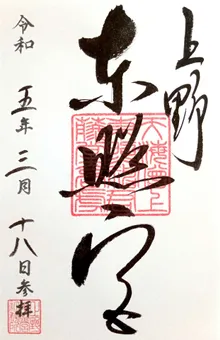 上野
東照宮
令和五年三月十八日参拝